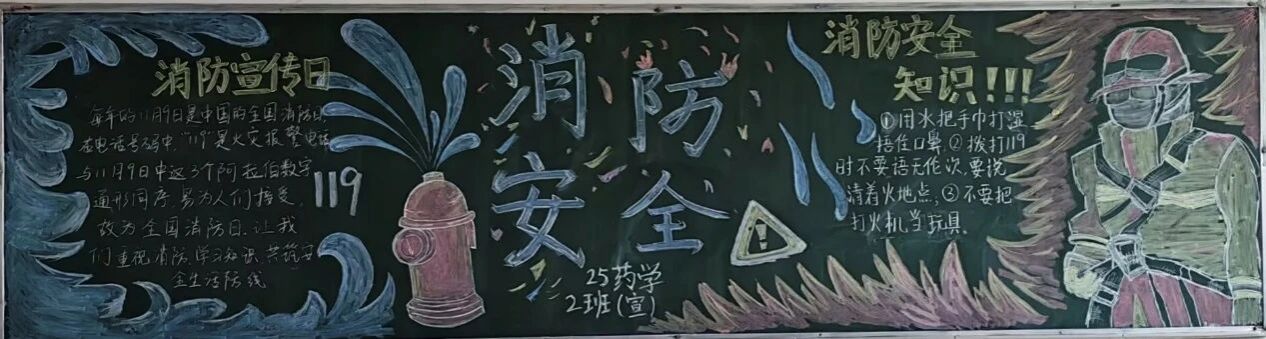 消防宣传日
每年的11月9日是中国的全国消防日,
在电话号码中,"119"是火灾报警电话
与11月9日中这3个阿拉伯数字
通形同序,易为人们接受,
故为全国消防日.让我
们重视消防,学习知识,共筑安
全生活防线
119
消防
安全
!
25药学
2班(宣)
消防安全
知识!!!
①用水把手巾打湿
捂住口鼻,②拨打119
时不要语无伦次,要说
清着火地点,③不要把
打火机当玩具.